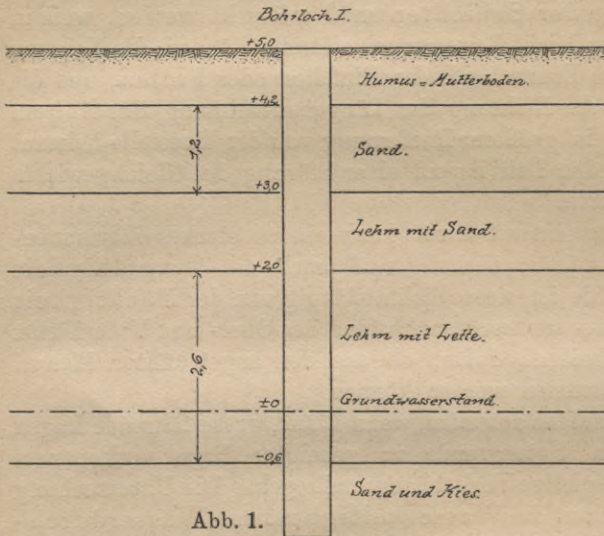 Bohrloch I.
+5,0
Humus-Mutterboden.
+4,2
1,2
Sand.
+3,0
Lehm mit Sand.
+2,0
Lehm mit Lette.
2,6
±0
Grundwasserstand.
-0,6
Sand und Kies.
Abb. 1.